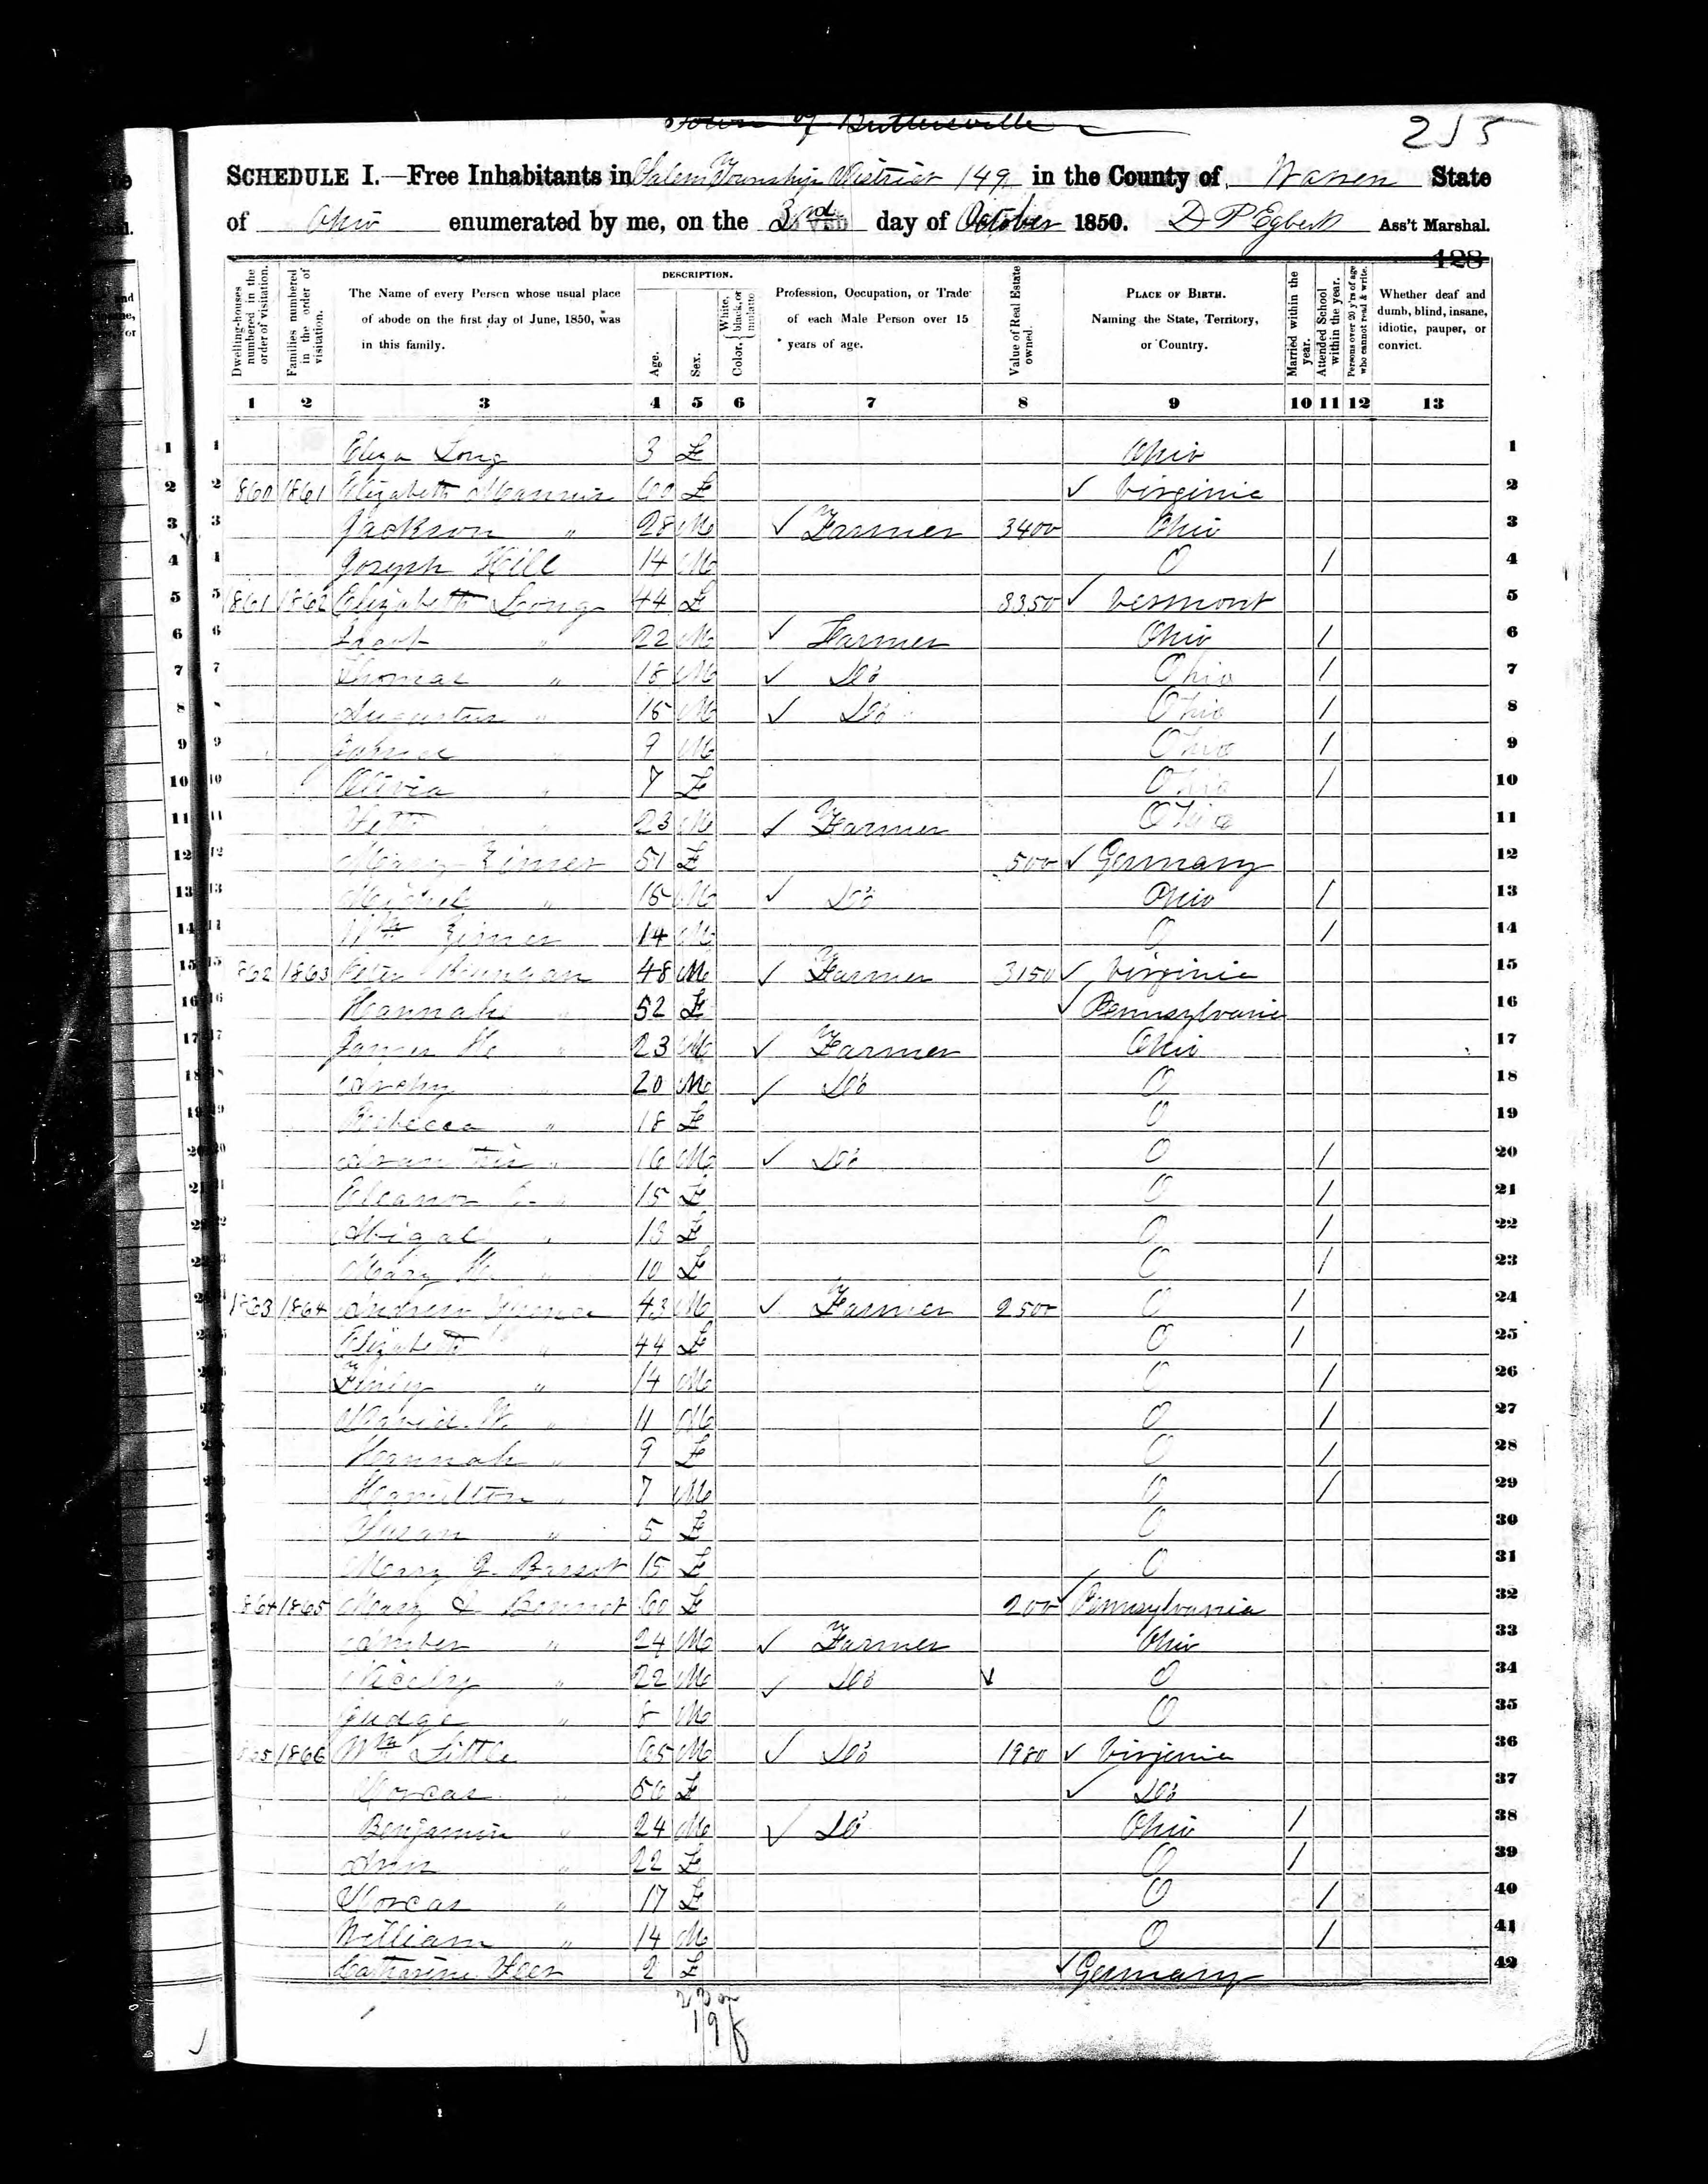 Town of Butlersville
215
SCHEDULE I.—Free Inhabitants in Salem Township District 149 in the County of Warren State
of Ohio enumerated by me, on the 3rd day of October 1850. D P Egbert Ass't Marshal.
128
Dwelling-houses numbered in the order of visitation.
Families numbered in the order of visitation.
The Name of every Person whose usual place of abode on the first day of June, 1850, was in this family.
DESCRIPTION.
Age.
Sex.
Color, White, black, or mulatto
Profession, Occupation, or Trade of each Male Person over 15 years of age.
Value of Real Estate owned.
PLACE OF BIRTH. Naming the State, Territory, or Country.
Married within the year.
Attended School within the year.
Persons over 20 y'rs of age who cannot read & write.
Whether deaf and dumb, blind, insane, idiotic, pauper, or convict.
1 2 3 4 5 6 7 8 9 10 11 12 13
1 Eliza Long 3 F Ohio 1
2 1860 1861 Elizabeth 60 F ✓ Virginia 2
3 Jackson " 28 M ✓ Farmer 3400 Ohio 3
4 Joseph Hill 14 M O / 4
5 1861 1862 Elizabeth Long 44 F 8350 ✓ Vermont 5
6 " 22 M ✓ Farmer Ohio / 6
7 Thomas " 18 M ✓ Do Ohio / 7
8 Augustus " 15 M ✓ Do Ohio / 8
9 " 9 M Ohio / 9
10 Olivia " 7 F Ohio / 10
11 " 23 M ✓ Farmer Ohio 11
12 Mary Zimer 51 F 500 ✓ Germany 12
13 " 15 M ✓ Do Ohio / 13
14 Wm 14 M O / 14
15 1862 1863 Peter 48 M ✓ Farmer 3150 ✓ Virginia 15
16 Hannah " 52 F ✓ Pennsylvania 16
17 James H. " 23 M ✓ Farmer Ohio 17
18 " 20 M ✓ Do O 18
19 Rebecca " 18 F O 19
20 " 16 M ✓ Do O / 20
21 Eleanor " 15 F O / 21
22 Abigal " 13 F O / 22
23 Mary " 10 F O / 23
24 1863 1864 Andrew 43 M ✓ Farmer 2500 O / 24
25 Elizabeth " 44 F O / 25
26 Finley " 14 M O / 26
27 David W. " 11 M O / 27
28 Hannah " 9 F O / 28
29 Hamilton " 7 M O / 29
30 Susan " 5 F O 30
31 Mary J. 15 F O 31
32 1864 1865 Mary 60 F 200 ✓ Pennsylvania 32
33 " 24 M ✓ Farmer Ohio 33
34 " 22 M ✓ Do ✓ O 34
35 Judge " 8 M O 35
36 1865 1866 Wm Little 65 M ✓ Do 1980 ✓ Virginia 36
37 Dorcas " 56 F ✓ Do 37
38 Benjamin " 24 M ✓ Do Ohio / 38
39 Ann " 22 F O / 39
40 Dorcas " 17 F O / 40
41 William " 14 M O / 41
42 Catharine 2 F ✓ Germany 42
23 m
19 f